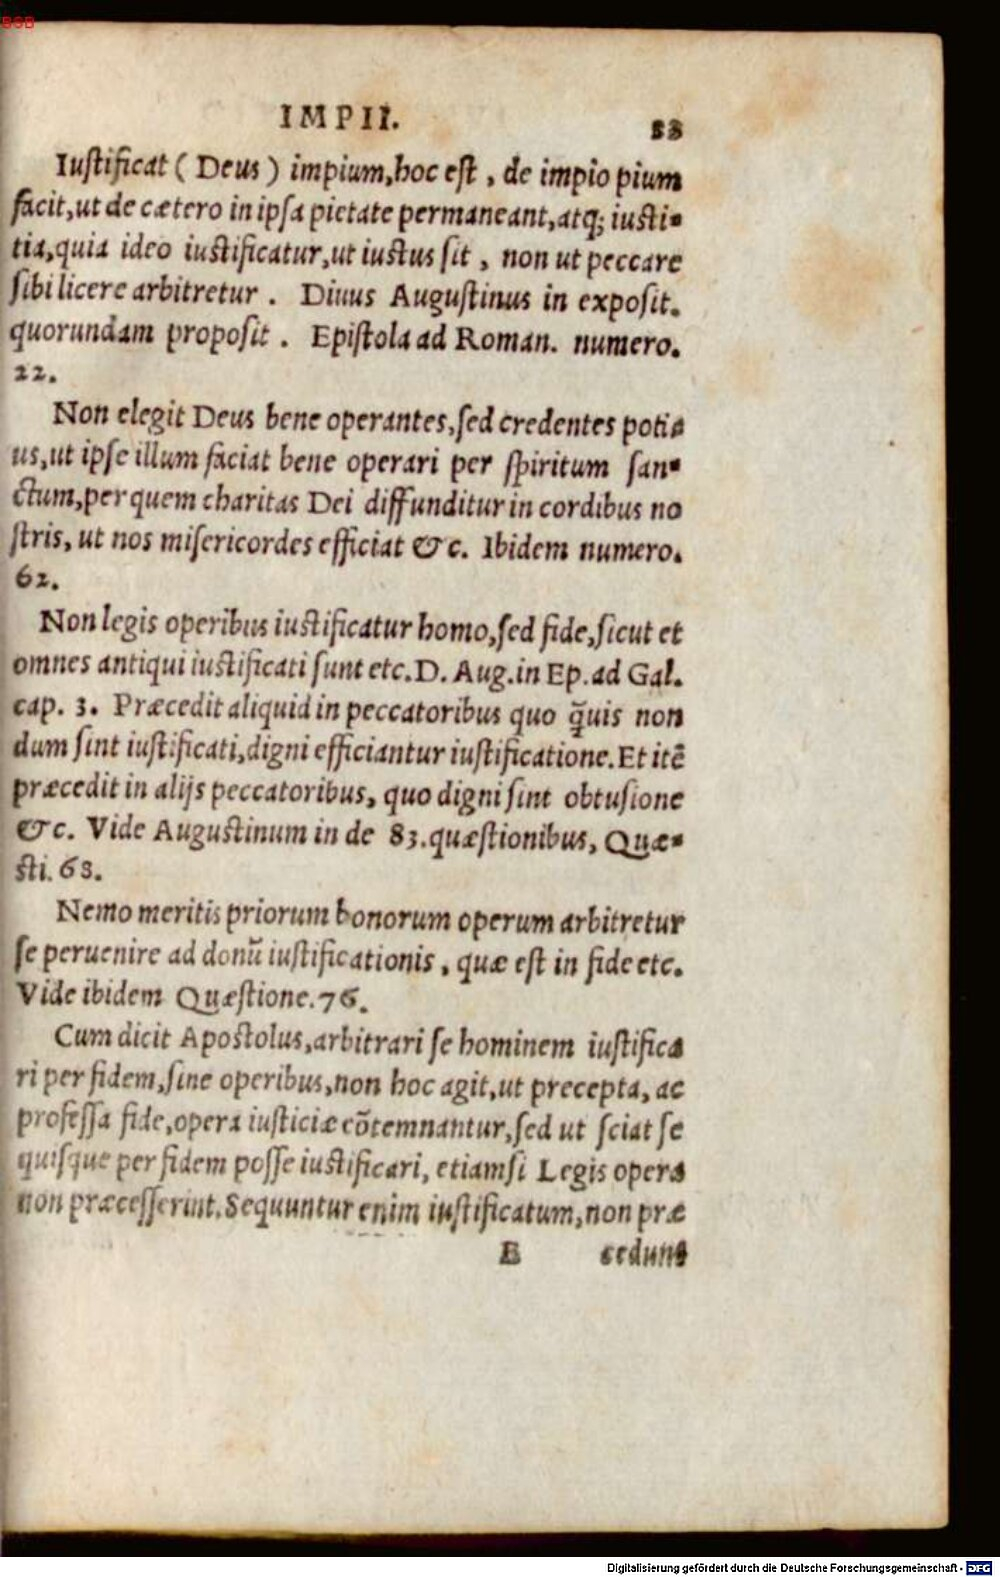 BSB
IMPII. 33
Iustificat ( Deus ) impium, hoc est, de impio pium
facit, ut de cætero in ipsa pietate permaneant, atq; iusti-
tia, quia ideo iustificatur, ut iustus sit, non ut peccare
sibi licere arbitretur. Diuus Augustinus in exposit.
quorundam proposit. Epistola ad Roman. numero.
22.
Non elegit Deus bene operantes, sed credentes poti-
us, ut ipse illum faciat bene operari per spiritum san-
ctum, per quem charitas Dei diffunditur in cordibus no
stris, ut nos misericordes efficiat &c. Ibidem numero.
62.
Non legis operibus iustificatur homo, sed fide, sicut et
omnes antiqui iustificati sunt etc. D. Aug. in Ep. ad Gal.
cap. 3. Præcedit aliquid in peccatoribus quo q̃uis non
dum sint iustificati, digni efficiantur iustificatione. Et itẽ
præcedit in alijs peccatoribus, quo digni sint obtusione
&c. Vide Augustinum in de 83. quæstionibus, Quæ-
sti. 68.
Nemo meritis priorum bonorum operum arbitretur
se peruenire ad donũ iustificationis, quæ est in fide etc.
Vide ibidem Quæstione. 76.
Cum dicit Apostolus, arbitrari se hominem iustifica
ri per fidem, sine operibus, non hoc agit, ut precepta, ac
professa fide, opera iusticiæ cõtemnantur, sed ut sciat se
quisque per fidem posse iustificari, etiamsi Legis opera
non præcesserint. Sequuntur enim iustificatum, non præ
E cedunt
Digitalisierung gefördert durch die Deutsche Forschungsgemeinschaft - DFG